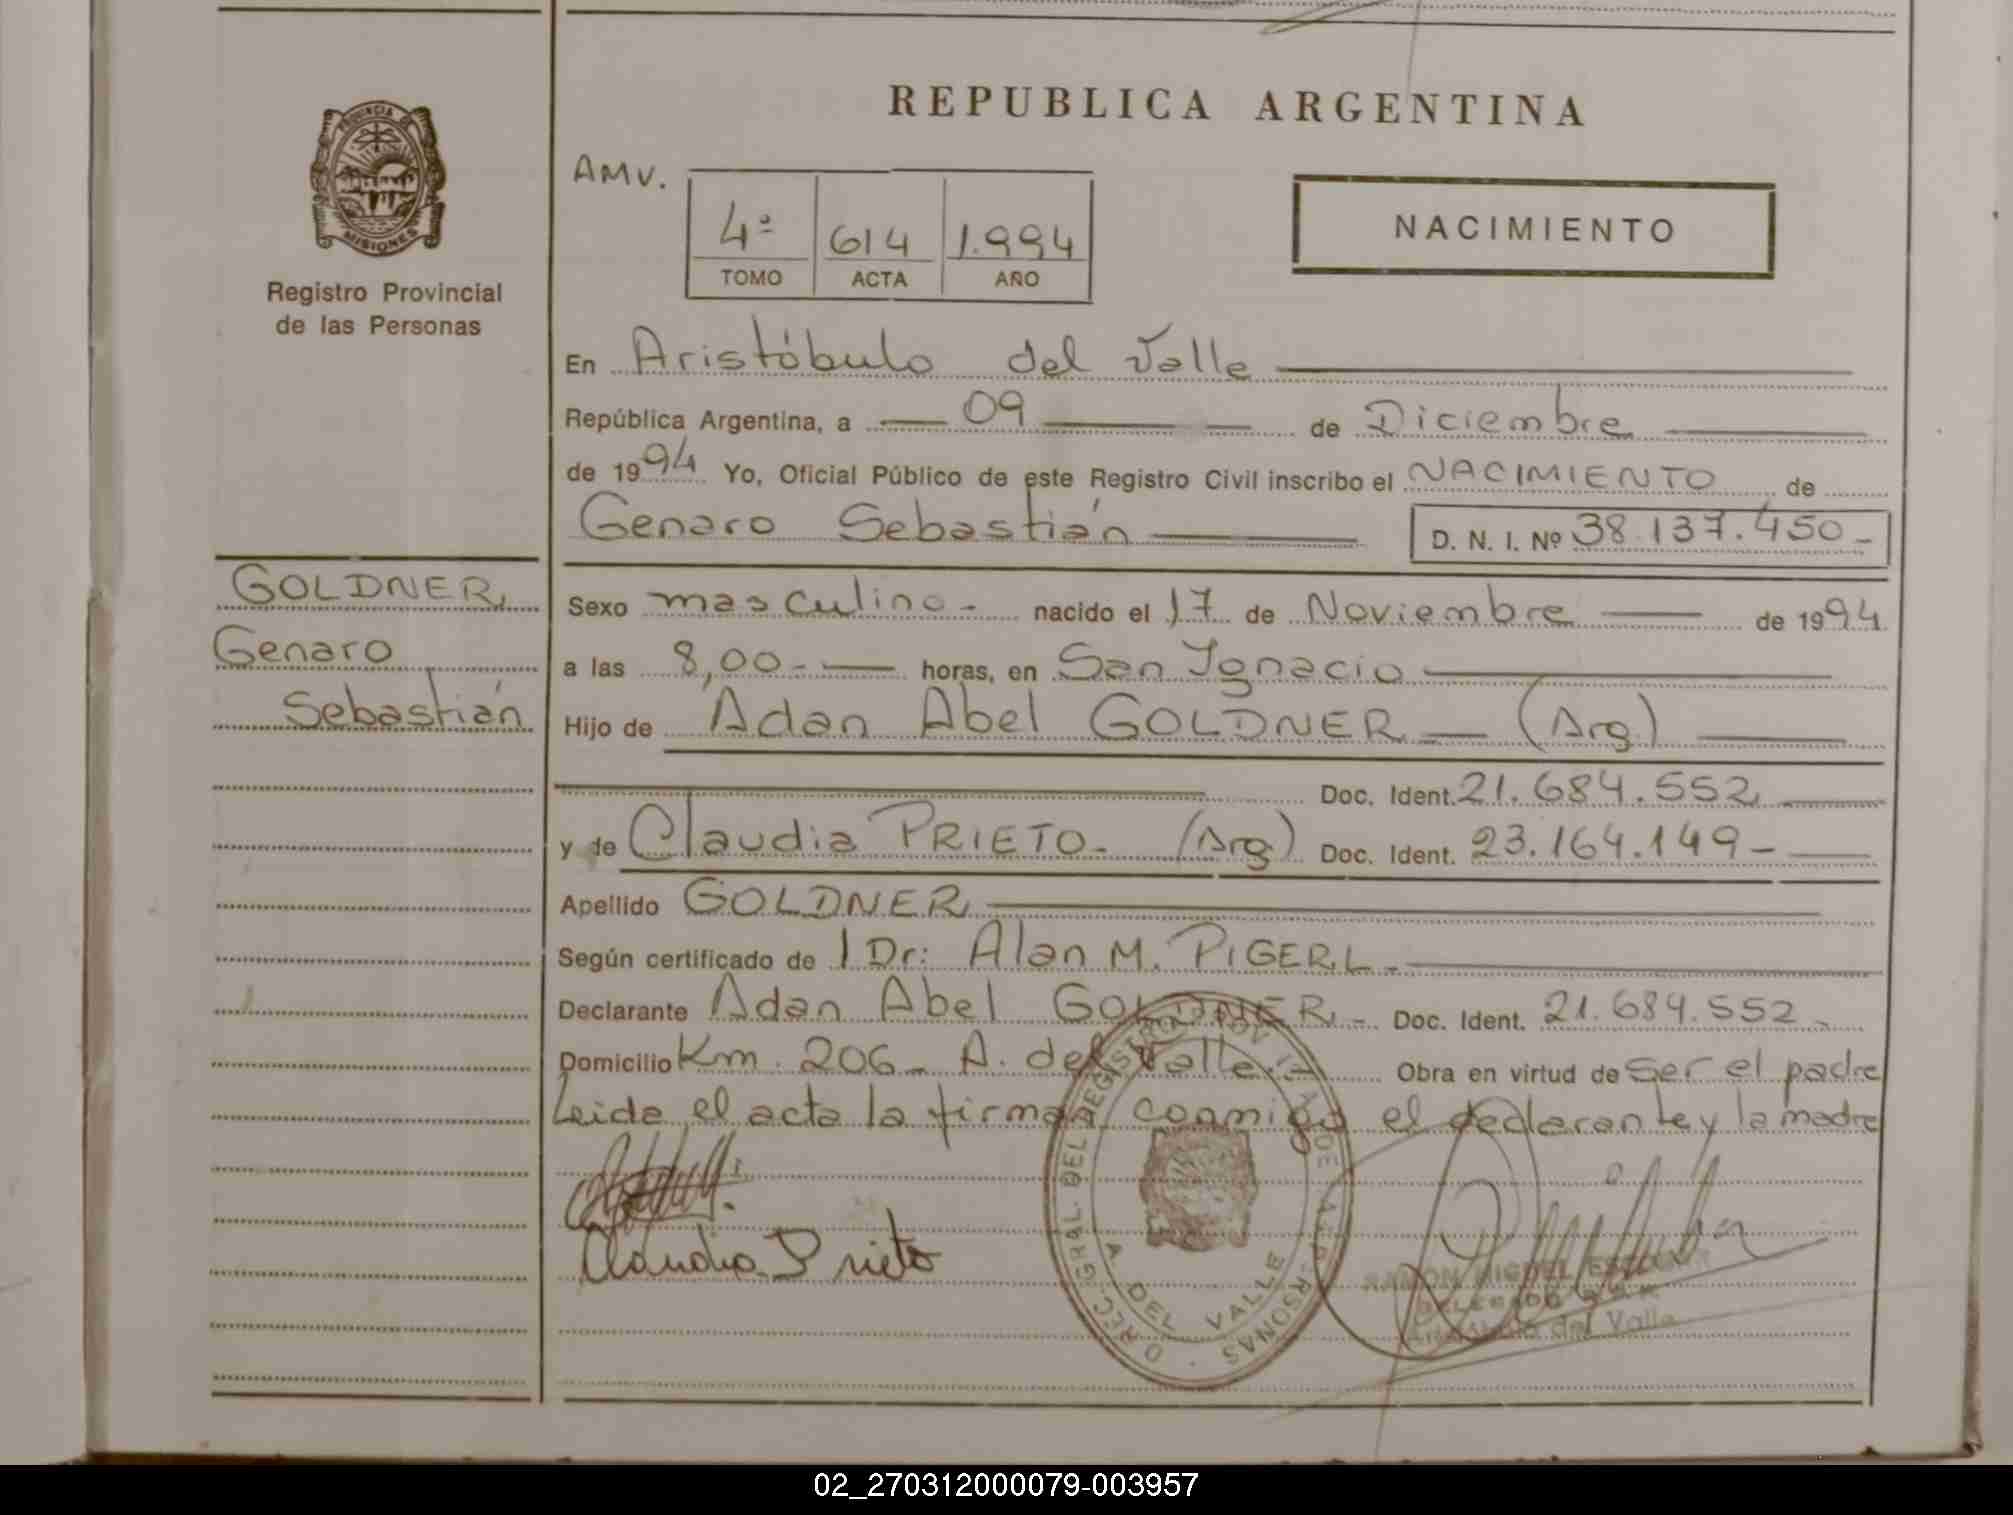 REPUBLICA ARGENTINA
PROVINCIA DE
MISIONES
Registro Provincial
de las Personas
AMV.
4º 614 1.994
TOMO ACTA AÑO
NACIMIENTO
En Aristóbulo del Valle
República Argentina, a 09 de Diciembre
de 1994 Yo, Oficial Público de este Registro Civil inscribo el NACIMIENTO de
Genaro Sebastián D. N. I. Nº 38.137.450-
GOLDNER,
Genaro
Sebastián
Sexo masculino- nacido el 17 de Noviembre de 1994
a las 8,00.- horas, en San Ignacio
Hijo de Adan Abel GOLDNER (Arg)
Doc. Ident. 21.684.552
y de Claudia PRIETO- (Arg) Doc. Ident. 23.164.149-
Apellido GOLDNER
Según certificado de 1 Dr: Alan M. PIGERL-
Declarante Adan Abel GOLDNER.- Doc. Ident. 21.684.552-
Domicilio Km. 206- A. del Valle.- Obra en virtud de ser el padre
Leida el acta la firman conmigo el declarante y la madre
Claudia Prieto
DIREC. GRAL. DEL REGISTRO DE LAS PERSONAS
A. DEL VALLE
RAMON MIGUEL
DELEGADO
Aristóbulo del Valle
02_270312000079-003957